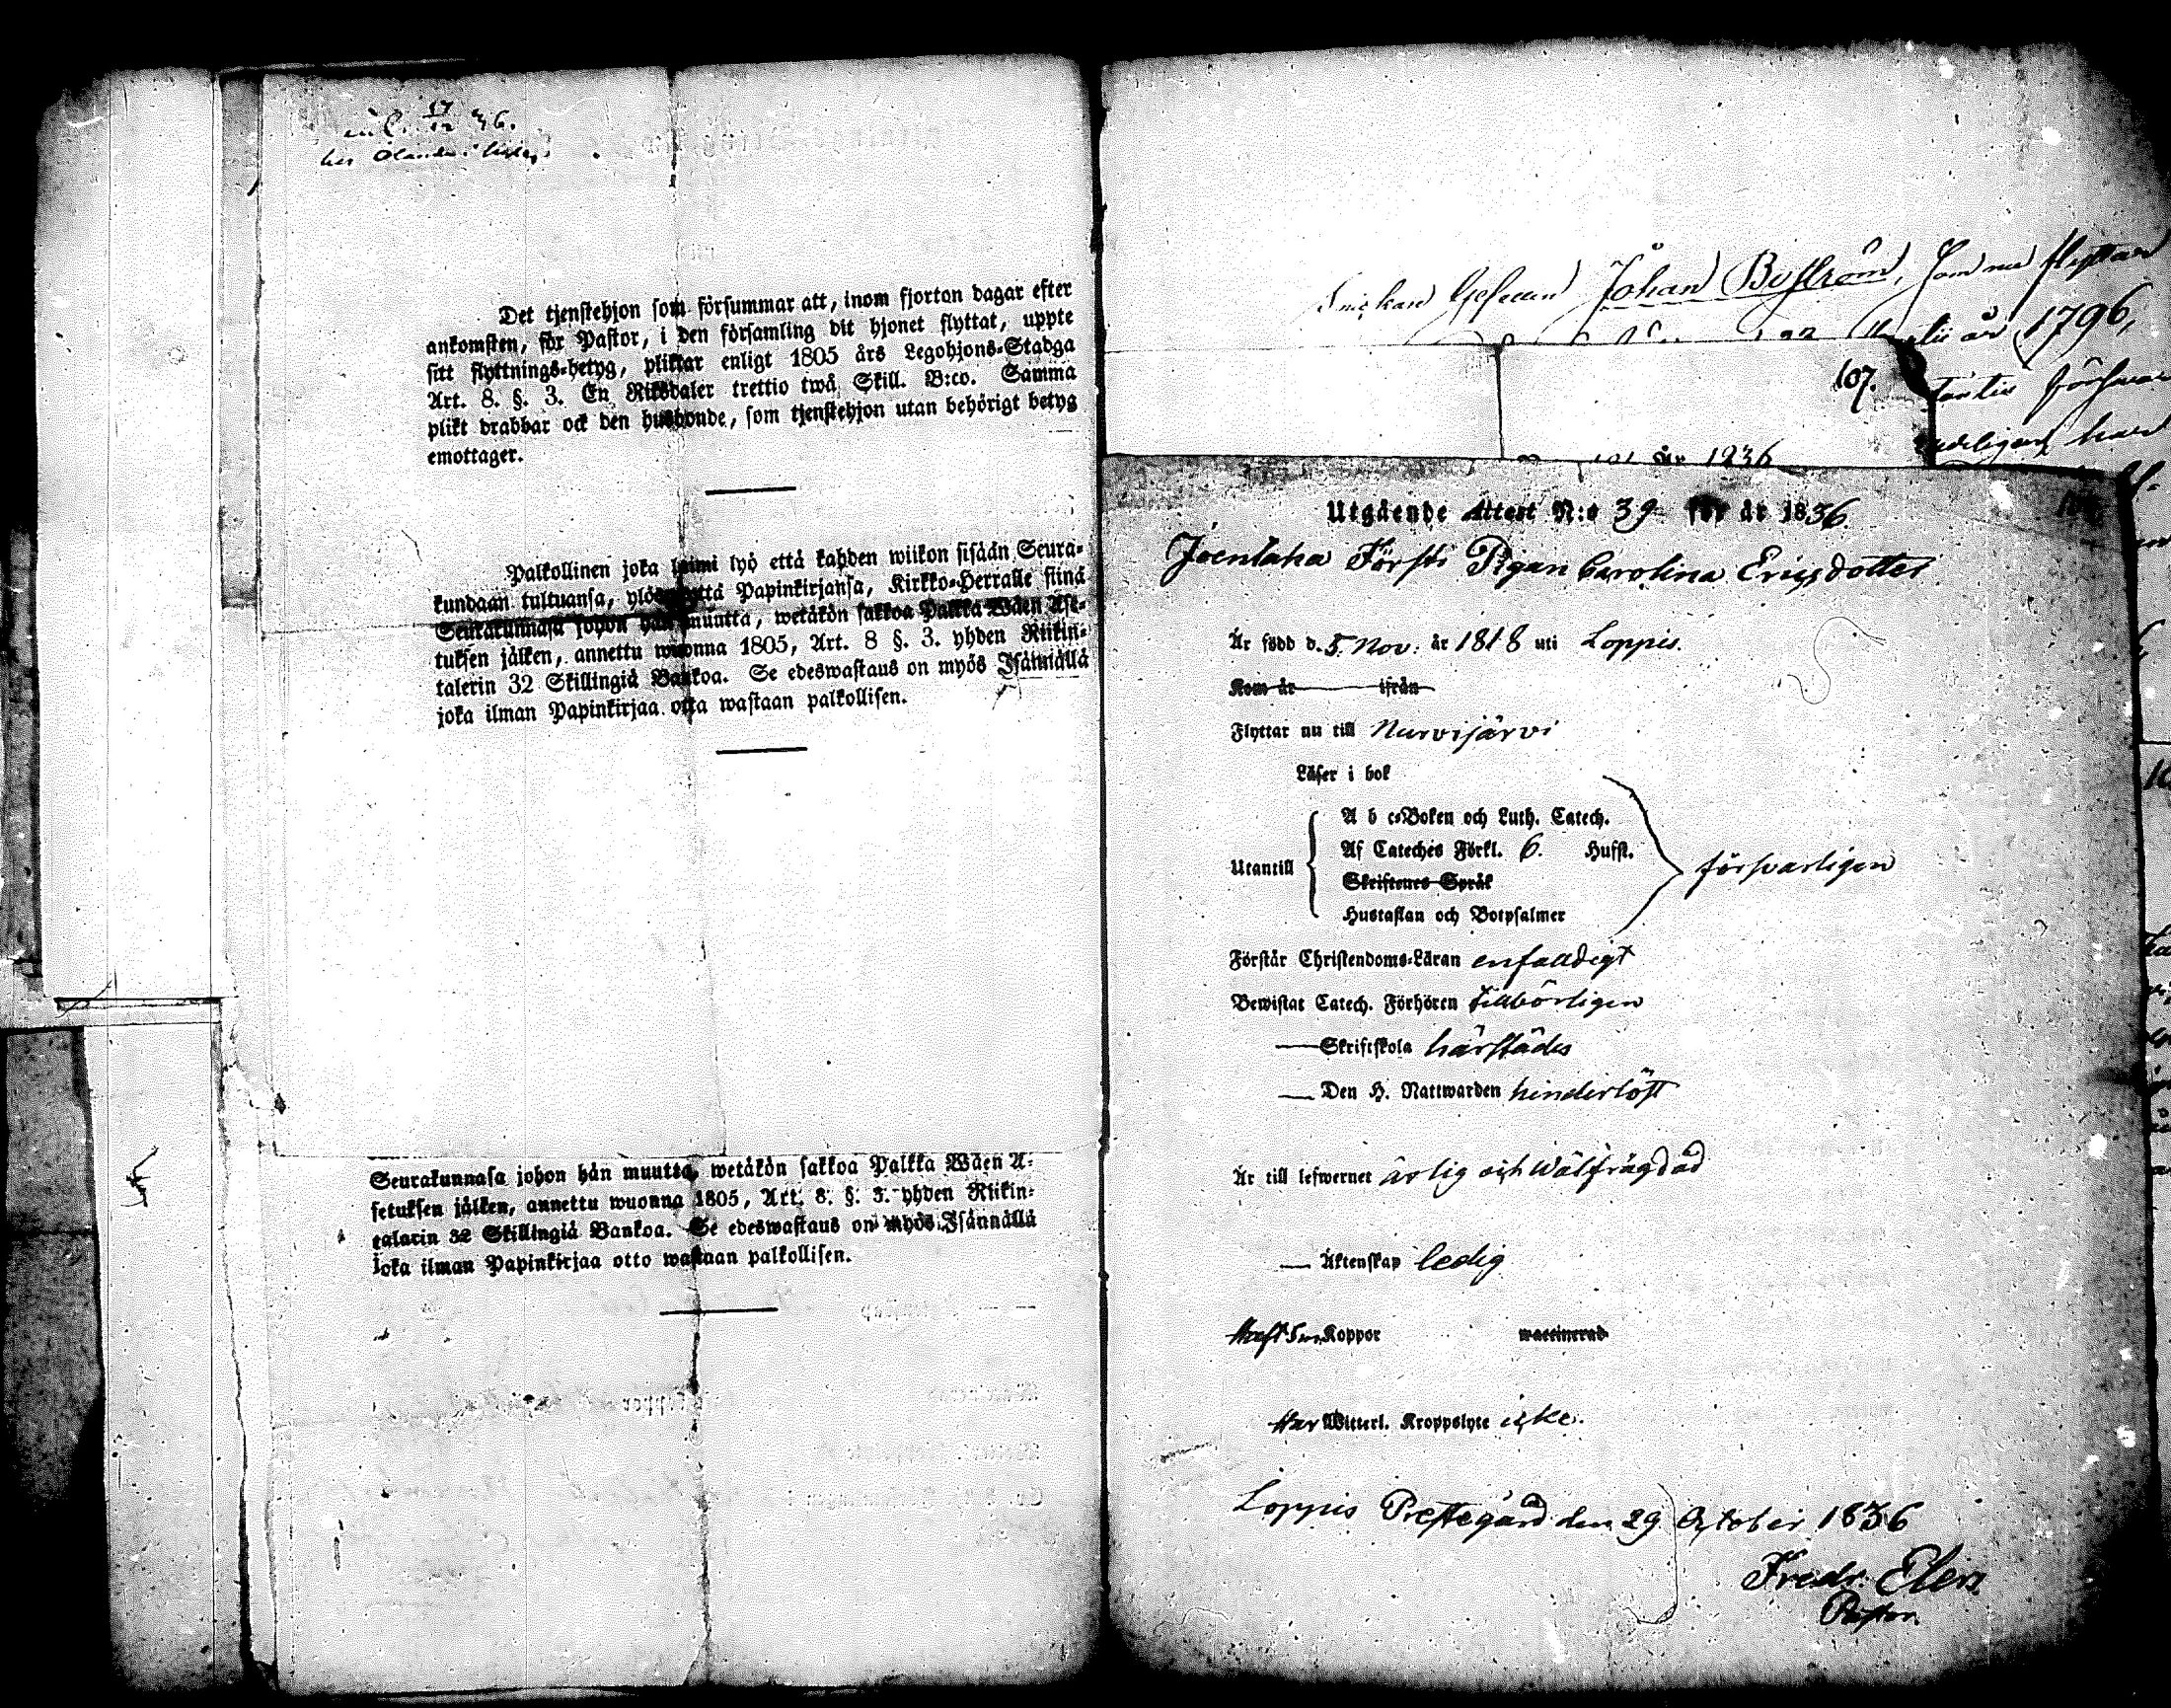 17
12 36.
hos Olander i
Det tjenstehjon som försummar att, inom fjorton dagar efter
ankomsten, för Pastor, i den församling dit hjonet flyttat, uppte
sitt flyttnings-betyg, pliktar enligt 1805 års Legohjons-Stadga
Art. 8. §. 3. En Riksdaler trettio twå Skill. B:co. Samma
plikt drabbar ock den husbonde, som tjenstehjon utan behörigt betyg
emottager.
Palkollinen joka laimi lyö että kahden wiikon sisään Seura-
kundaan tultuansa, ylösnäyttä Papinkirjansa, Kirkko-Herralle siinä
Seurakunnasa johon hän muutta, wetäkön sakkoa Palkka Wäen Ase-
tuksen jälken, annettu wuonna 1805, Art. 8 §. 3. yhden Riikin-
talerin 32 Skillingiä Bankoa. Se edeswastaus on myös Isännällä
joka ilman Papinkirjaa otta wastaan palkollisen.
Seurakunnasa johon hän muutta, wetäkön sakkoa Palkka Wäen A-
setuksen jälken, annettu wuonna 1805, Art. 8. §. 3. yhden Riikin-
talarin 32 Skillingiä Bankoa. Se edeswastaus on myös Isännällä
joka ilman Papinkirjaa otto wastaan palkollisen.
Johan Boström, som nu flyttar
år 1796,
107.
år 1836
Utgående Attest N:o 39 för år 1836
Joentaka Försti Pigan Carolina Ericsdotter
Är född d. 5 Nov: år 1818 uti Loppis.
Kom år ifrån
Flyttar nu till Nurvijärvi
Läser i bok
A b c-Boken och Luth. Catech.
Af Cateches Förkl. 6. Hufst.
Utantill försvarligen
Skriftenes Språk
Hustaflan och Botpsalmer
Förstår Christendoms-Läran enfalldigt
Bewistat Catech. Förhören tillbörligen
Skriftskola härstädes
Den H. Nattwarden hinderlöst
Är till lefwernet ärlig och wälfrägdad
Äktenskap ledig
Haft Sm Koppor waccinerad
Har Witterl. Kroppslyte icke.
Loppis Prestegård den 29 October 1836
Fredr. Elers
Pastor.